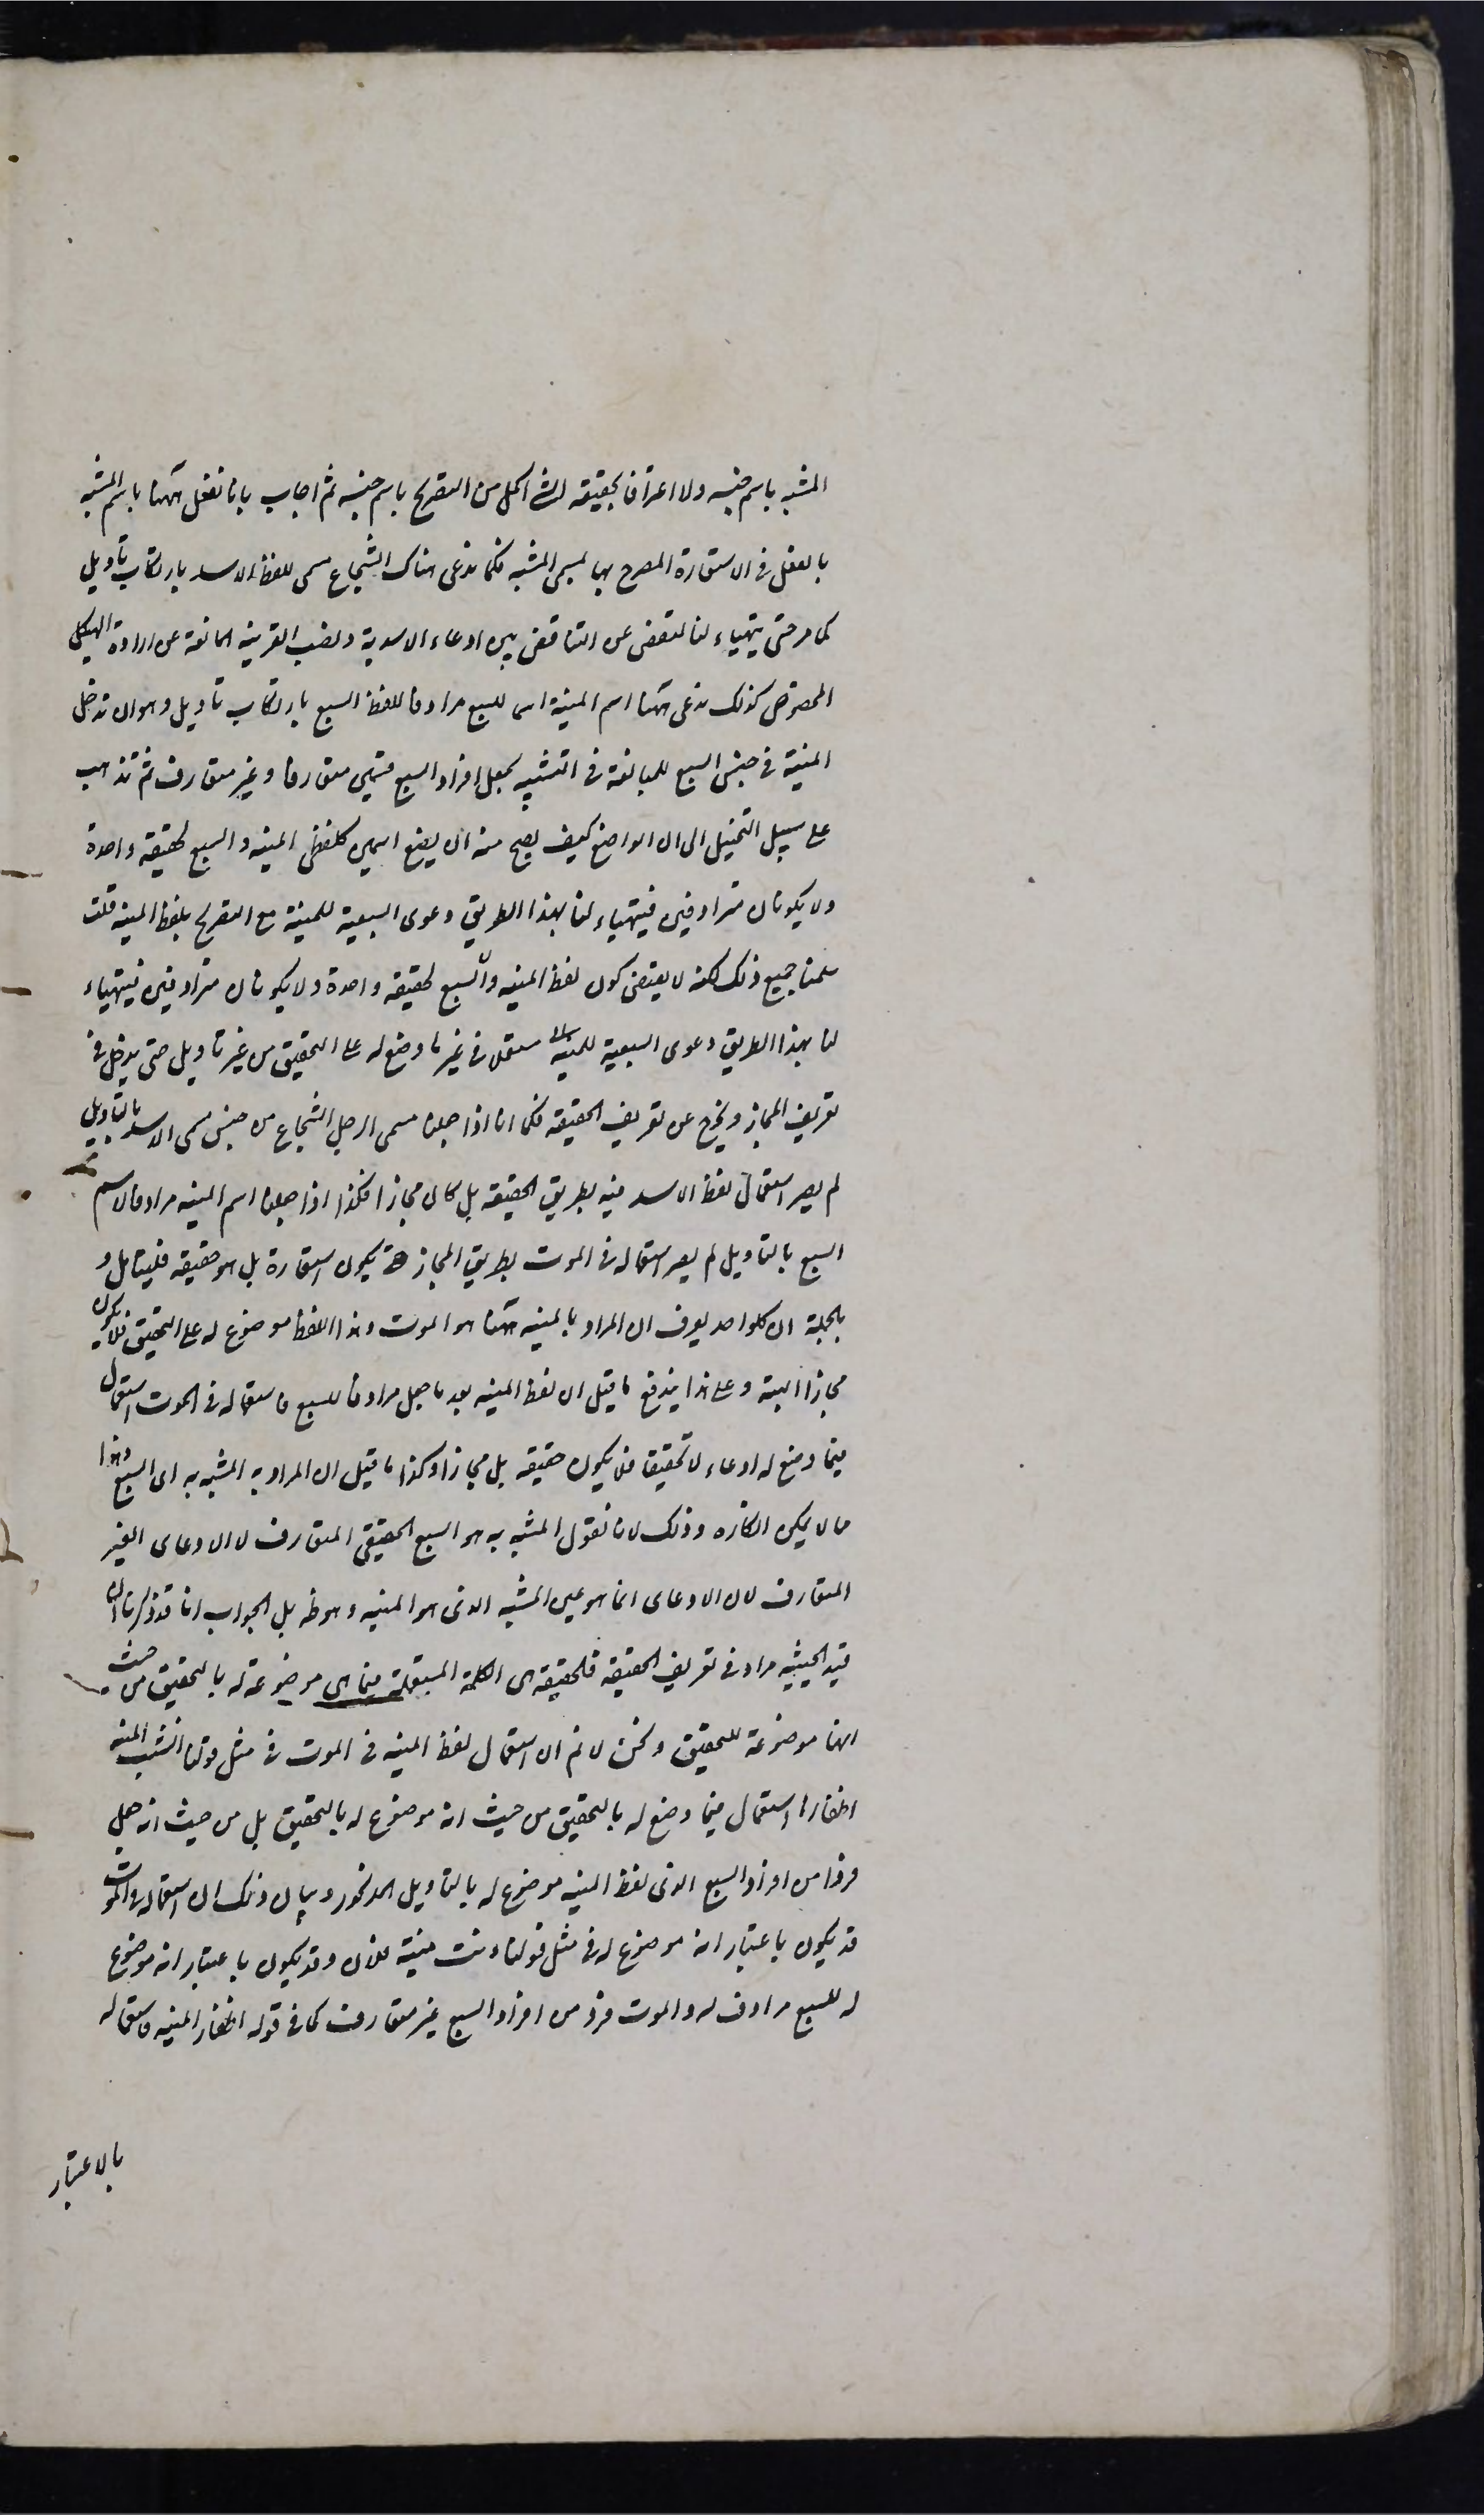 المشبه باسم جنسه ولا اعترافا بحقيقة الشئ اكمل من التصريح باسم جنسه ثم اجاب بانا نفعل ههنا باسم المشبه
ما نفعل فى الاستعارة المصرح بها بمسمى المشبه فكما ندعى هناك الشجاع مسمى للفظ الاسد بارتكاب تأويل
كما مر حتى يتهياء لنا التفصى عن التناقض بين ادعاء الاسدية ونصب القرينة المانعة عن ارادة الهيكل
المخصوص كذلك ندعى ههنا اسم المنية اسما للسبع مرادفا للفظ السبع بارتكاب تاويل وهو ان ندخل
المنية فى جنس السبع للمبالغة فى التشبيه بجعل افراد السبع قسمين متعارفا وغير متعارف ثم نذهب
على سبيل التخييل الى ان الواضع كيف يصح منه ان يضع اسمين كلفظى المنية والسبع لحقيقة واحدة
ولا يكونان مترادفين فيتهياء لنا بهذا الطريق دعوى السبعية للمنية مع التصريح بلفظ المنية قلت
سلمنا جميع ذلك لكنه لا يقتضى كون لفظ المنية والسبع لحقيقة واحدة ولا يكونان مترادفين فيتهياء
لنا بهذا الطريق دعوى السبعية للمنية مستعملا فى غير ما وضع له على التحقيق من غير تاويل حتى يدخل فى
تعريف المجاز ويخرج عن تعريف الحقيقة فكما انا اذا جعلنا مسمى الرجل الشجاع من جنس مسمى الاسد بالتاويل
لم يصر استعمال لفظ الاسد فيه بطريق الحقيقة بل كان مجازا فكذا اذا جعلنا اسم المنية مرادفا لاسم
السبع بالتاويل لم يصر استعماله فى الموت بطريق المجاز حتى يكون استعارة بل هو حقيقة فليتامل و
بالجملة ان كلواحد يعرف ان المراد بالمنية ههنا هو الموت وهذا اللفظ موضوع له على التحقيق فلا يكون
مجازا البتة وعلى هذا يندفع ما قيل ان لفظ المنية بعد ما جعل مرادفا للسبع فاستعماله فى الموت استعمال
فيما وضع له ادعاء لا تحقيقا فلا يكون حقيقة بل مجازا وكذا ما قيل ان المراد به المشبه به اى السبع وهذا
مما لا يمكن انكاره وذلك لانا نقول المشبه به هو السبع الحقيقى المتعارف لا الادعاى الغير
المتعارف لان الادعاى انما هو عين المشبه الذى هو المنية وهو ظه بل الجواب انا قد ذكرنا ان
قيد الحيثية مراد فى تعريف الحقيقة فالحقيقة هى الكلمة المستعملة فيما هى موضوعة له بالتحقيق من حيث
انها موضوعة للتحقيق ونحن لا نم ان استعمال لفظ المنية فى الموت فى مثل قولنا انشبت المنية
اظفارها استعمال فيما وضع له بالتحقيق من حيث انه موضوع له بالتحقيق بل من حيث انه جعل
فردا من افراد السبع الذى لفظ المنية موضوع له بالتاويل المذكور وبيان ذلك ان استعماله فى الموت
قد يكون باعتبار انه موضوع له فى مثل قولنا دنت منية فلان وقد يكون باعتبار انه موضوع
له للسبع مرادف له والموت فرد من افراد السبع غير متعارف كما فى قوله اظفار المنية فاستعماله
بالاعتبار